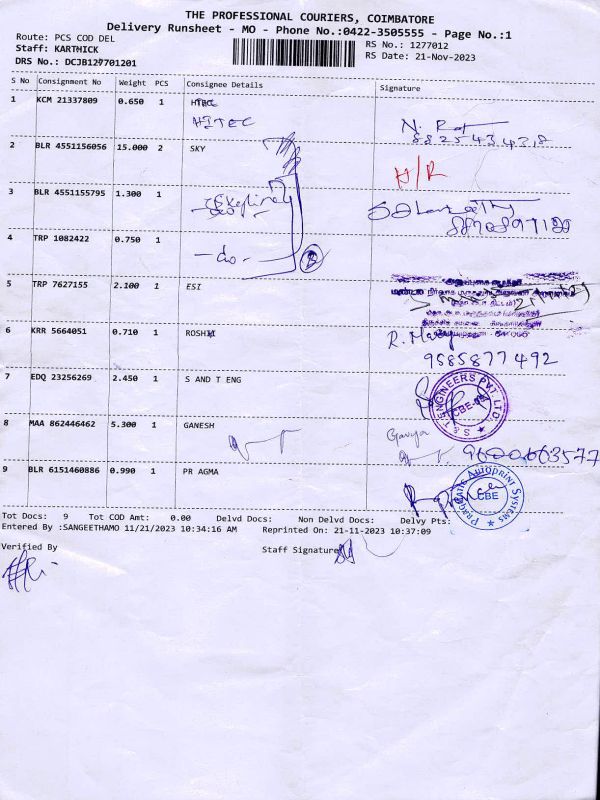 THE PROFESSIONAL COURIERS, COIMBATORE
Delivery Runsheet - MO - Phone No.:0422-3505555 - Page No.:1
Route: PCS COD DEL
Staff: KARTHICK
DRS No.: DCJB127701201
RS No.: 1277012
RS Date: 21-Nov-2023
S No Consignment No Weight PCS Consignee Details Signature
1 KCM 21337809 0.650 1
HITEC
2 BLR 4551156056 15.000 2 SKY
H/R
3 BLR 4551155795 1.300 1
4 TRP 1082422 0.750 1
5 TRP 7627155 2.100 1 ESI
6 KRR 5664051 0.710 1 ROSHII
9585877492
7 EDQ 23256269 2.450 1 S AND T ENG
S & T ENGINEERS PVT. LTD.
8 MAA 862446462 5.300 1 GANESH
9600663577
9 BLR 6151460886 0.990 1 PR AGMA
Pragmatic Autoprint Systems
CBE
Tot Docs: 9 Tot COD Amt: 0.00 Delvd Docs: Non Delvd Docs: Delvy Pts:
Entered By :SANGEETHAMO 11/21/2023 10:34:16 AM Reprinted On: 21-11-2023 10:37:09
Verified By Staff Signature